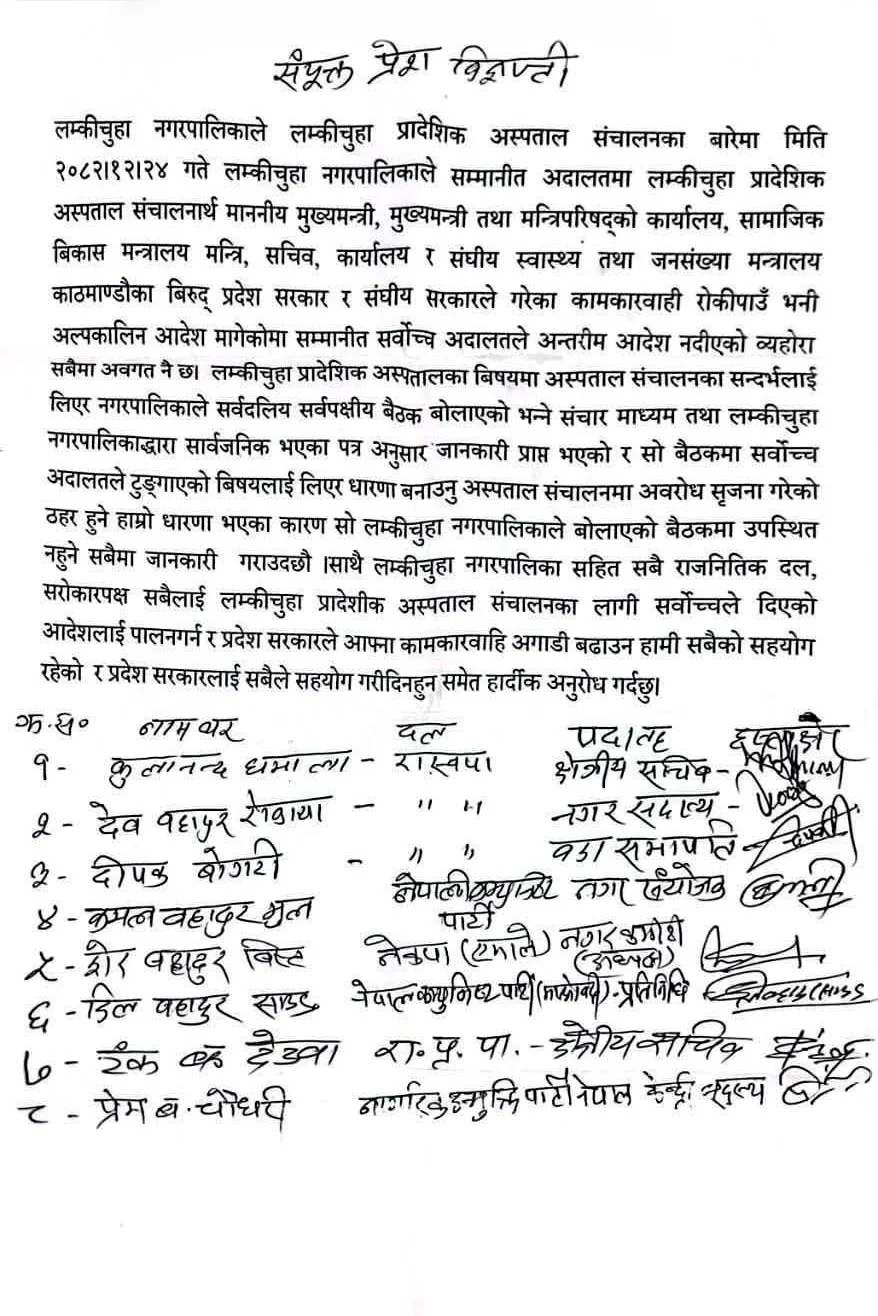 संयुक्त प्रेश विज्ञप्ती
लम्कीचुहा नगरपालिकाले लम्कीचुहा प्रादेशिक अस्पताल संचालनका बारेमा मिति
२०८२।१२।२४ गते लम्कीचुहा नगरपालिकाले सम्मानीत अदालतमा लम्कीचुहा प्रादेशिक
अस्पताल संचालनार्थ माननीय मुख्यमन्त्री, मुख्यमन्त्री तथा मन्त्रिपरिषद्को कार्यालय, सामाजिक
बिकास मन्त्रालय मन्त्रि, सचिव, कार्यालय र संघीय स्वास्थ्य तथा जनसंख्या मन्त्रालय
काठमाण्डौका बिरुद् प्रदेश सरकार र संघीय सरकारले गरेका कामकारवाही रोकीपाउँ भनी
अल्पकालिन आदेश मागेकोमा सम्मानीत सर्वोच्च अदालतले अन्तरीम आदेश नदीएको व्यहोरा
सबैमा अवगत नै छ। लम्कीचुहा प्रादेशिक अस्पतालका बिषयमा अस्पताल संचालनका सन्दर्भलाई
लिएर नगरपालिकाले सर्वदलिय सर्वपक्षीय बैठक बोलाएको भन्ने संचार माध्यम तथा लम्कीचुहा
नगरपालिकाद्धारा सार्वजनिक भएका पत्र अनुसार जानकारी प्राप्त भएको र सो बैठकमा सर्वोच्च
अदालतले टुङ्गाएको बिषयलाई लिएर धारणा बनाउनु अस्पताल संचालनमा अवरोध सृजना गरेको
ठहर हुने हाम्रो धारणा भएका कारण सो लम्कीचुहा नगरपालिकाले बोलाएको बैठकमा उपस्थित
नहुने सबैमा जानकारी गराउदछौ ।साथै लम्कीचुहा नगरपालिका सहित सबै राजनितिक दल,
सरोकारपक्ष सबैलाई लम्कीचुहा प्रादेशीक अस्पताल संचालनका लागी सर्वोच्चले दिएको
आदेशलाई पालनगर्न र प्रदेश सरकारले आफ्ना कामकारवाहि अगाडी बढाउन हामी सबैको सहयोग
रहेको र प्रदेश सरकारलाई सबैले सहयोग गरीदिनहुन समेत हार्दीक अनुरोध गर्दछु।
क्र.सं० नामथर दल पदातह
१- कुलानन्द धमाला - रास्वपा क्षेत्रीय सचिव -
२ - देव वहादुर - " " नगर सदस्य -
३ - दीपक बोगटी - " " वडा सभापति
४ - कमल वहादुर नेपाली कम्युनिष्ट पार्टी नगर संयोजक
५ - शेर बहादुर विष्ट नेकपा (एमाले) नगर कमीटी (अध्यक्ष)
६ - डिल बहादुर साउद नेपाल कम्युनिष्ट पार्टी (माओवादी) - प्रतिनिधि
७ - टंक देउवा रा. प्र. पा. - क्षेत्रीय सचिव
८ - प्रेम ब. चौधरी नागरिक उन्मुक्ति पार्टी नेपाल केन्द्रीय सदस्य